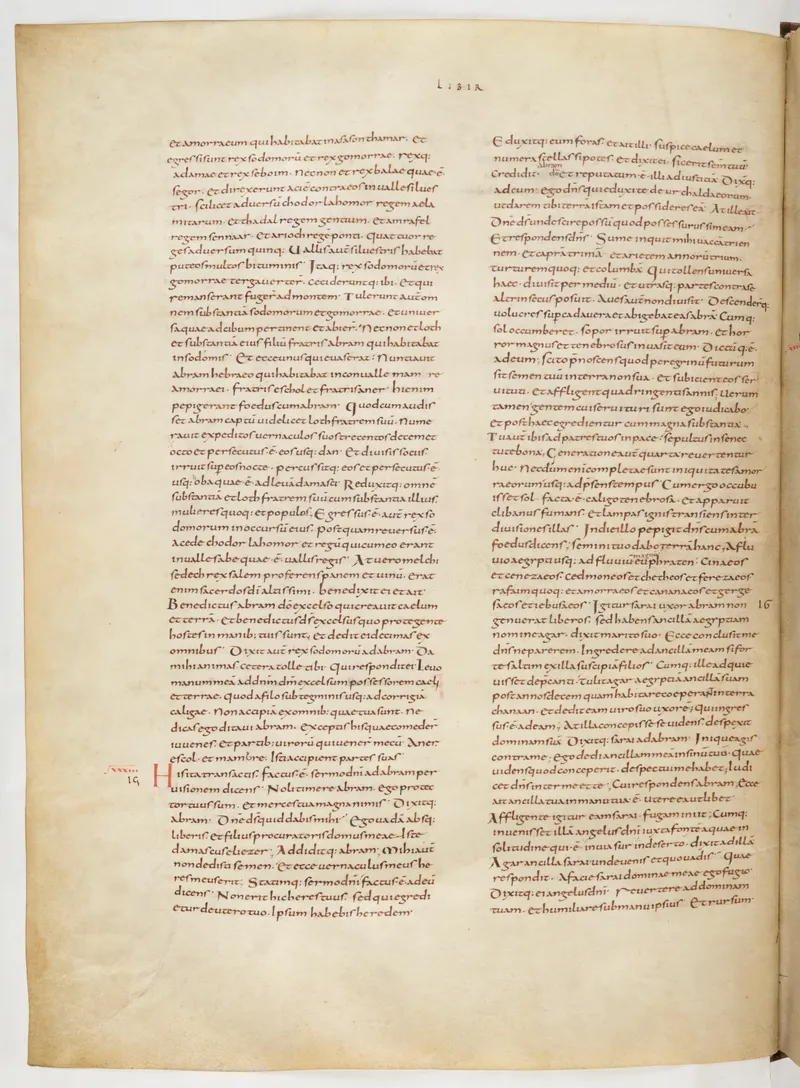 LIBER
et amorraeum qui habitabat in asasonthamar. Et
egressi sunt rex sodomorū et rex gomorrae. rexq:
adamae et rex seboim. Necnon et rex balae quae ē
segor. et direxerunt aciē contra eos in valle silues
tri. scilicet aduersū chodorlahomor regem aela
mitarum. et thadal regem gentium. et amrafel
regem sennaar. et arioch regē ponti. Quattuor re
ges aduersum quinq: Uallis aūt siluestris habebat
puteos multos bituminis. Itaq: rex sodomorū et rex
gomorrae terga uerter̄. cecideruntq: ibi. et qui
remanserant fugerā ad montem. Tulerunt aūt om
nem substantiā sodomorum et gomorrae. et uniuer
sa quae ad cibum pertinent et abier̄. Necnon et loth
et substantiā eius filiū fratris abram qui habitabat
in sodomis. Et ecce unus qui euaserat. Nuntiauit
abram hebraeo qui habitabat in conualle mamre
amorraei. fratris eschol et fratris aner. hi enim
pepigerant foedus cum abram. Quod cum audis
set abram captū uidelicet loth fratrem suū. Nume
rauit expeditos uernaculos suos trecentos decem et
octo et persecutus ē eos usq: dan. Et diuisis sociis
irruit sup eos nocte. percussitq: eos et persecutus ē
usq: oba quae ē ad leuā damasci. Reduxitq: omnē
substantiā et loth fratrem suū cum substantia illius
mulieres quoq: et populos. Egressus ē aūt rex so
domorum in occursū eius. postquam reuersus ē
a cede chodorlahomor et regū qui cum eo erant
in ualle sabe quae ē uallis regis. At uero melchi
sedech rex salem proferens panem et uinū. erat
enim sacerdos dī altissimi. benedixit ei et ait.
Benedictus abram dō excelso qui creauit caelum
et terrā. et benedictus dš excelsus quo protegente
hostes in manib: tuis sunt. et dedit ei decimas ex
omnibus. Dixit aūt rex sodomorū ad abram. Da
mihi animas cetera tolle tibi. Qui respondit ei. Leuo
manum meā ad dnm dm excelsum possessorem caeli
et terrae. quod a filo subtegminis usq: ad corrigiā
caligae. Non accipiā ex omnib: quae tua sunt. Ne
dicas ego ditaui abram. exceptis his quae comeder̄
iuuenes. et partib: uirorū qui uener̄ mecū. Aner
escol. et mambre. Isti accipient partes suas
His ita transactis. factus ē sermo dni ad abram per
15
uisionem dicens. Noli timere abram. ego protec
tor tuus sum. et merces tua magna nimis. Dixitq:
abram. Dne ds quid dabis mihi. Ego uadā absq:
liberis. et filius procuratoris domus meae. Iste
damascus eliezer. Addiditq: abram. Mihi aūt
non dedisti semen. Et ecce uernaculus meus he
res meus erit. Statimq: sermo dni factus ē ad eū
dicens. Non erit hic heres tuus. sed qui egredi
etur de utero tuo. Ipsum habebis heredem.
Eduxitq: eum foras. et ait illi. suspice caelum et
numera stellas si potes. et dixit ei. sic erit semen tuū.
Credidit abram dō et reputatum ē illi ad iustitiā. Dixitq:
ad eum. ego dns qui eduxi te de ur chaldaeorum.
ut darem tibi terrā istam et possideres eā. At ille ait.
Dne ds unde scire possū quod possessurus sim eam.
Et respondens dns. Sume inquit mihi uaccā trien
nem. et caprā trimā. et arietem annorū trium.
turturem quoq: et columbā. Qui tollens uniuersa
haec. diuisit per mediū. et utrasq: partes contra se
altrinsecus posuit. Aues aūt non diuisit. Descenderq:
uolucres sup cadauera et abigebat eas abrā. Cumq:
sol occumberet. sopor irruit sup abram. et hor
ror magnus et tenebrosus inuasit eum. Dictūq: ē
ad eum. scito pnoscens quod peregrinū futurum
sit semen tuū in terra non sua. et subicient eos ser
uituti. et affligent quadringentis annis. Uerum
tamen gentem cui seruituri sunt ego iudicabo.
et post haec egredientur cum magna substantia.
Tu aūt ibis ad patres tuos in pace. sepultus in senec
tute bona. Generatione aūt quarta reuertentur
huc. Necdum enī completae sunt iniquitates amor
raeorum usq: ad psens tempus. Cum ergo occubu
isset sol. facta ē caligo tenebrosa. et apparuit
clibanus fumans. et lampas ignis transiens inter
diuisiones illas. In die illo pepigit dns cum abrā
foedus dicens. semini tuo dabo terrā hanc. A flu
uio aegypti usq: ad fluuiū magnum euphraten. Cinaeos
et cenezaeos. Cedmoneos et chetheos et ferezaeos
rafaim quoq: et amorraeos et cananaeos et gerge
saeos et iebusaeos. Igitur sarai uxor abram non
16
genuerat liberos. sed habens ancillā aegyptiam
nomine agar. dixit marito suo. Ecce conclusit me
dns ne parerem. Ingredere ad ancillā meam si for
te saltim ex illa suscipiā filios. Cumq: ille adquie
uisset depcanti. tulit agar aegyptiā ancillā suam
post annos decem quam habitare coeperant in terra
chanaan. et dedit eam uiro suo uxorē. qui ingres
sus ē ad eam. At illa concepisse se uidens despexit
dominam suā. Dixitq: sarai ad abram. Inique agis
contra me. ego dedi ancillam meā in sinū tuū. Quae
uidens quod conceperit. despectui me habet. Iudi
cet dns inter me et te. Cui respondens abram. Ecce
ait ancilla tua in manu tua ē. utere ea ut libet.
Affligente igitur eam sarai. fugam iniit. Cumq:
inuenisset illā angelus dni iuxta fontē aquae in
solitudine qui ē in uia sur in deserto. dixit ad illā
Agar ancilla sarai unde uenis et quo uadis. Quae
respondit. A facie sarai dominae meae ego fugio
Dixitq: ei angelus dni. Reuertere ad dominam
tuam. et humiliare sub manu ipsius. Et rursum